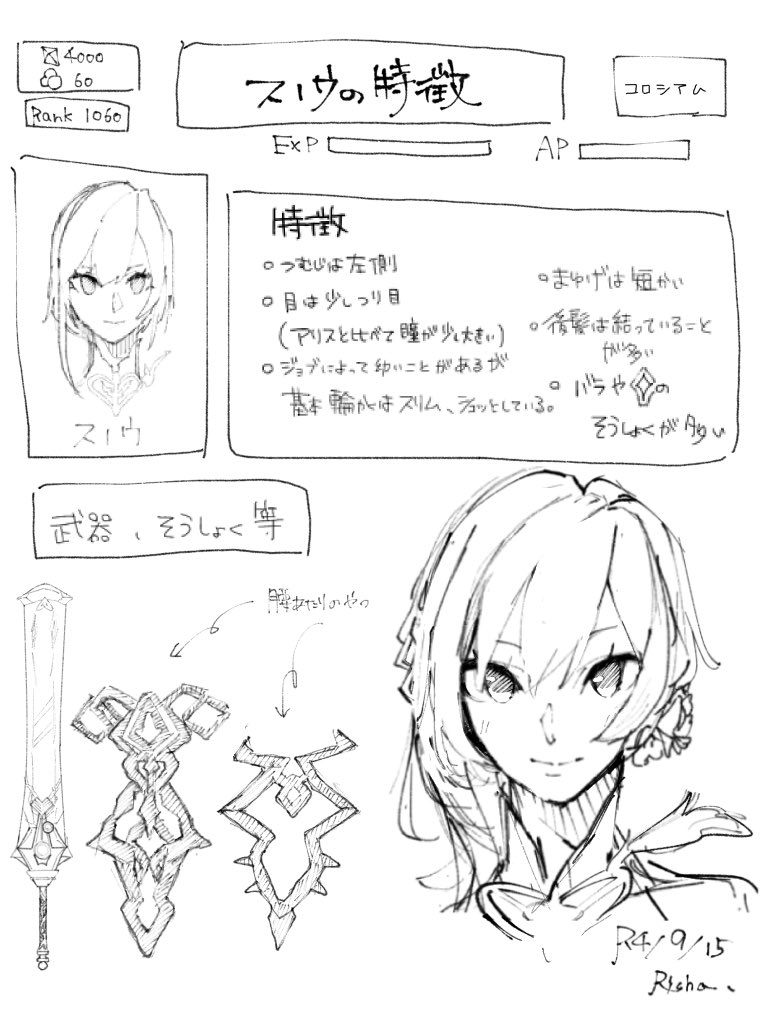 4000
60
Rank 1060
スノウの特徴
コロシアム
EXP
AP
スノウ
特徴
○つむじは左側
○目は少しつり目
(アリスと比べて瞳が少し大きい)
○ジョブによって幼いことがあるが
基本輪かくはスリム、シュッとしている。
○まゆげは短かい
○後髪は結っていること
が多い
○バラや
の
そうしょくが多い
武器、そうしょく等
腰あたりのやつ
R4/9/15
Risha.